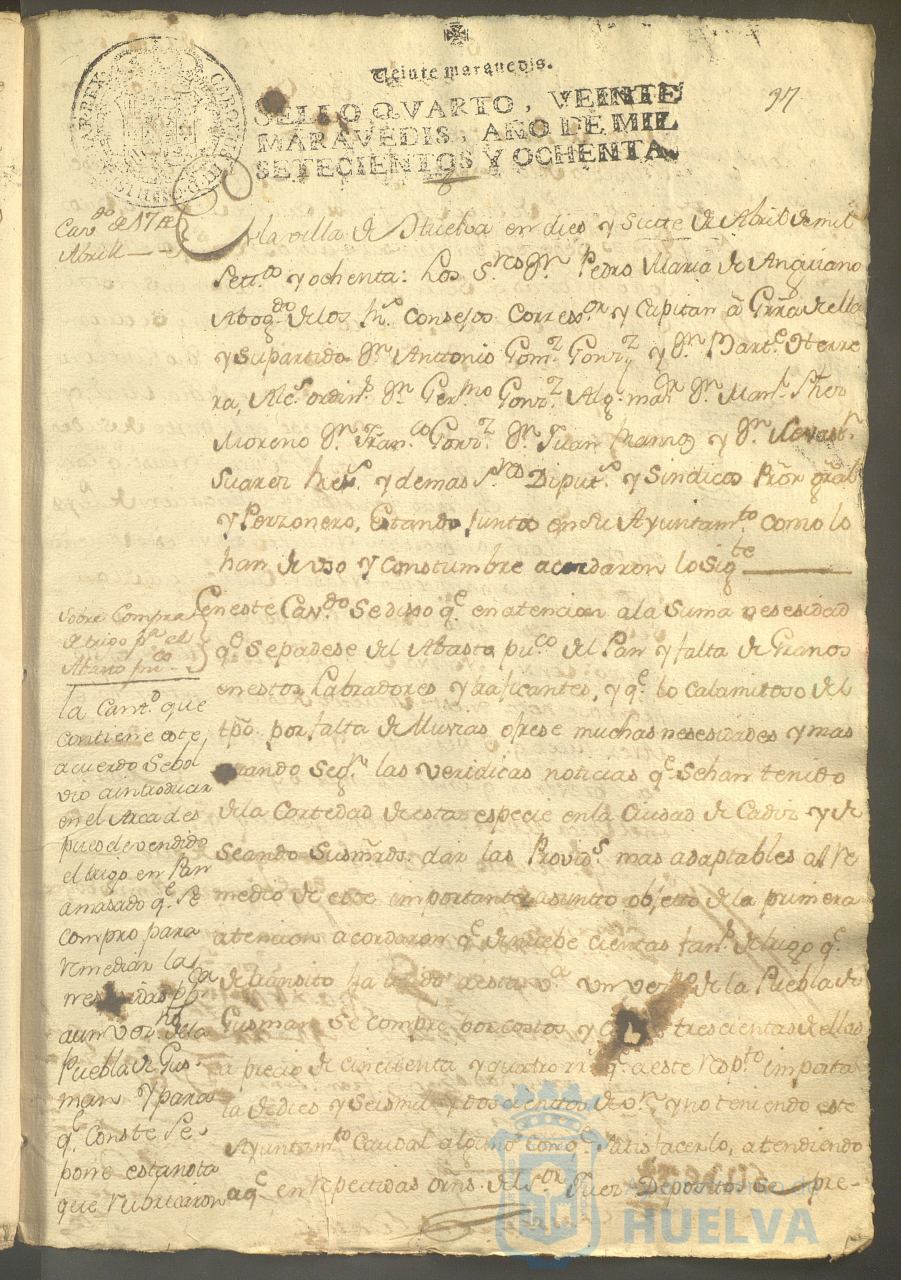 Veinte maravedis.
SELLO QVARTO, VEINTE
MARAVEDIS, AÑO DE MIL
SETECIENTOS Y OCHENTA.
97
Cavdo de 17 de
Abril
En la villa de Huelva en dies y Siete de Abril de mil
Settos y ochenta: Los Sres Dn Pedro Maria de Anguiano
Abogdo de los Rs Consejos Corregor y Capitan á Grra de ella
y su partido Dn Antonio Gomz Gonrz y Dn Barte Herre
ra, Alces ordins Dn Germo Gonrz Algl mar Dn Manl
Moreno Dn Franco Gonrz Dn Juan y Dn Sevastn
Suarez Rexs y demas Sres Diputs y Sindicos Pror gral
y Perzonero, Estando Juntos en Su Ayuntamto como lo
han de vso y Constumbre acordaron lo Sigte
Sobre Compra
de trigo pa el
Abasto pco
En este Cavdo Se dijo qe en atencion a la Suma nesesidad
qe Se padese del Abasto puco del Pan y falta de Granos
en estos Labradores y traficantes, y qe lo Calamitoso del
tpo por falta de lluvias ofrese muchas nesesidades y mas
quando Segn las veridicas noticias qe Se han tenido
de la Cortedad de esta especie en la Ciudad de Cadiz y de
Seando Sus mrds dar las Provids mas adaptables al Re
medio de este importante asunto objeto de la primera
atencion acordaron qe de nuebe cientas fans de trigo qe
de transito ha traido a esta va un veno de la Puebla de
Gusman Se compre por costos y trescientas de ellas
a precio de cincuenta y quatro rrs qe a este respto importa
la de dies y Seis mil y dos cientos de vn y no teniendo este
Ayuntamto Caudal alguno con qe Satisfacerlo, atendiendo
a qe en repetidas orns del Sor Juez Depositos Se pre-
la Cantd que
contiene este
acuerdo Se bol
vio a introducir
en el Arca des
pues de vendido
el trigo en Pan
amasado qe Se
compro para
remediar las
nesesidas pcas
a un veno de la
Puebla de Gus-
man y para
qe Conste Se
pone esta nota
que rubricaron
HUELVA